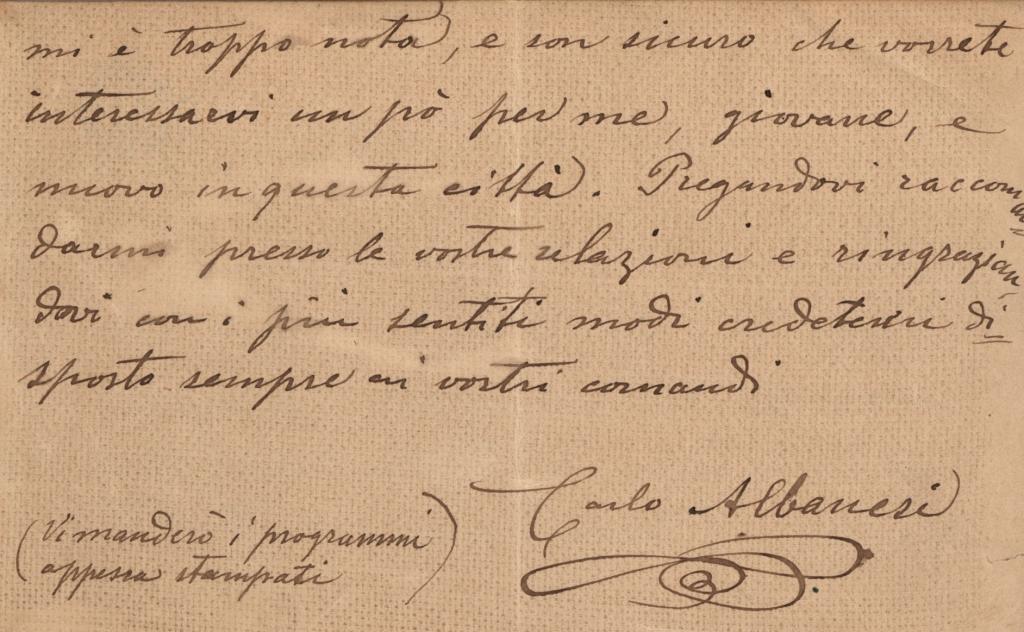 mi è troppo nota, e son sicuro che vorrete
interessarvi un pò per me, giovane, e
nuovo in questa città. Pregandovi raccoman
darmi presso le vostre relazioni e ringrazian
dovi con i più sentiti modi credetemi di
sposto sempre ai vostri comandi
Carlo Albanesi
(Vi manderò i programmi
appena stampati)